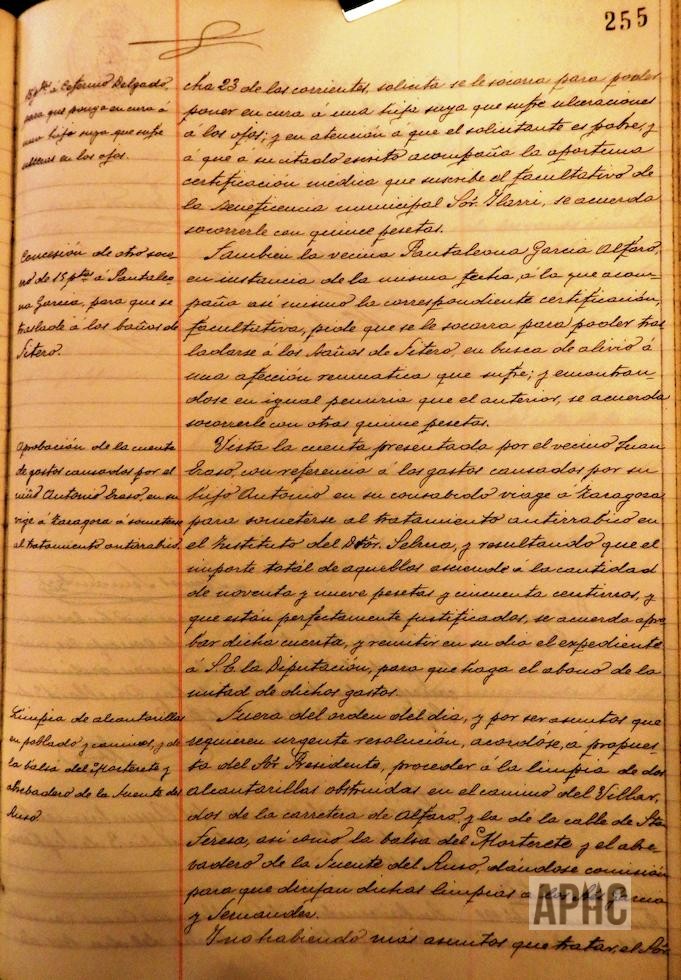 255
15 pts á Ceferino Delgado,
para que ponga en cura á
una hija suya que sufre
ulceras en los ojos.
cha 23 de los corrientes, solicita se le socorra para poder
poner en cura á una hija suya que sufre ulceraciones
á los ojos; y en atención á que el solicitante es pobre, y
á que á su citado escrito acompaña la oportuna
certificación médica que suscribe el facultativo de
la Beneficencia municipal Sor. Ilarri, se acuerda
socorrerle con quince pesetas.
Concesión de otro soco-
rro de 15 pts á Pantaleo
na Garcia, para que se
traslade á los baños de
Fitero.
Tambien la vecina Pantaleona Garcia Alfaro,
en instancia de la misma fecha, á la que acom-
paña asi mismo la correspondiente certificación,
facultativa, pide que se le socorra para poder tras
ladarse á los baños de Fitero, en busca de alivio á
una afección reumatica que sufre; y encontran-
dose en igual penuria que el anterior, se acuerda
socorrerle con otras quince pesetas.
Aprobación de la cuenta
de gastos causados por el
niño Antonio Eraso, en su
viage á Zaragoza á someterse
al tratamiento antirrabico.
Vista la cuenta presentada por el vecino Juan
Eraso, con referencia á los gastos causados por su
hijo Antonio en su consabido viage á Zaragoza
para someterse al tratamiento antirrabico en
el Instituto del Dtor. Selma, y resultando que el
importe total de aquellos asciende á la cantidad
de noventa y nueve pesetas y cincuenta centimos, y
que están perfectamente justificados, se acuerda apro
bar dicha cuenta, y remitir en su dia el expediente
á S.E. la Diputación, para que haga el abono de la
mitad de dichos gastos.
Limpia de alcantarillas
en poblado y caminos, y de
la balsa del Morterete y
abrebadero de la Fuente del
Ruso.
Fuera del orden del dia, y por ser asuntos que
requieren urgente resolución, acordóse, á propues
ta del Sor. Presidente, proceder á la limpia de dos
alcantarillas obstruidas en el camino del Villar,
dos de la carretera de Alfaro, y la de la calle de Sta
Teresa, asi como la balsa del Morterete y el abre
vadero de la Fuente del Ruso, dándose comisión
para que dirijan dichas limpias á los Garcia
y Fernandez.
Y no habiendo más asuntos que tratar, el Sor.
APHC